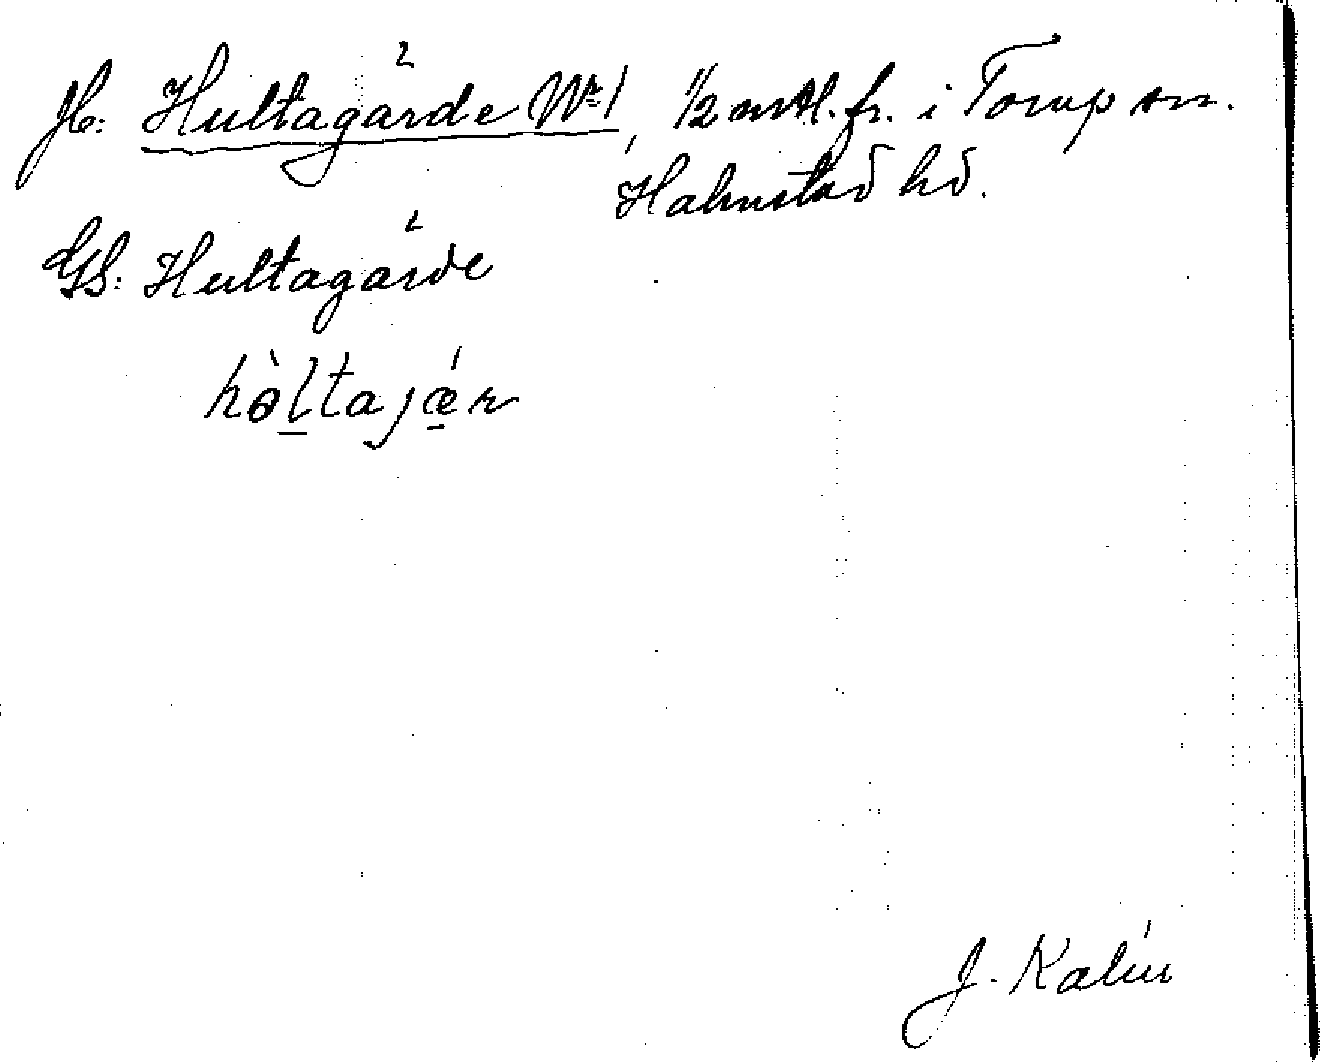 Jb: Hultagärde Nr 1, 1/2 mtl. fr. i Torup sn.
Halmstad hd.
GS: Hultagärde
hòltajǽr
J. Kalén